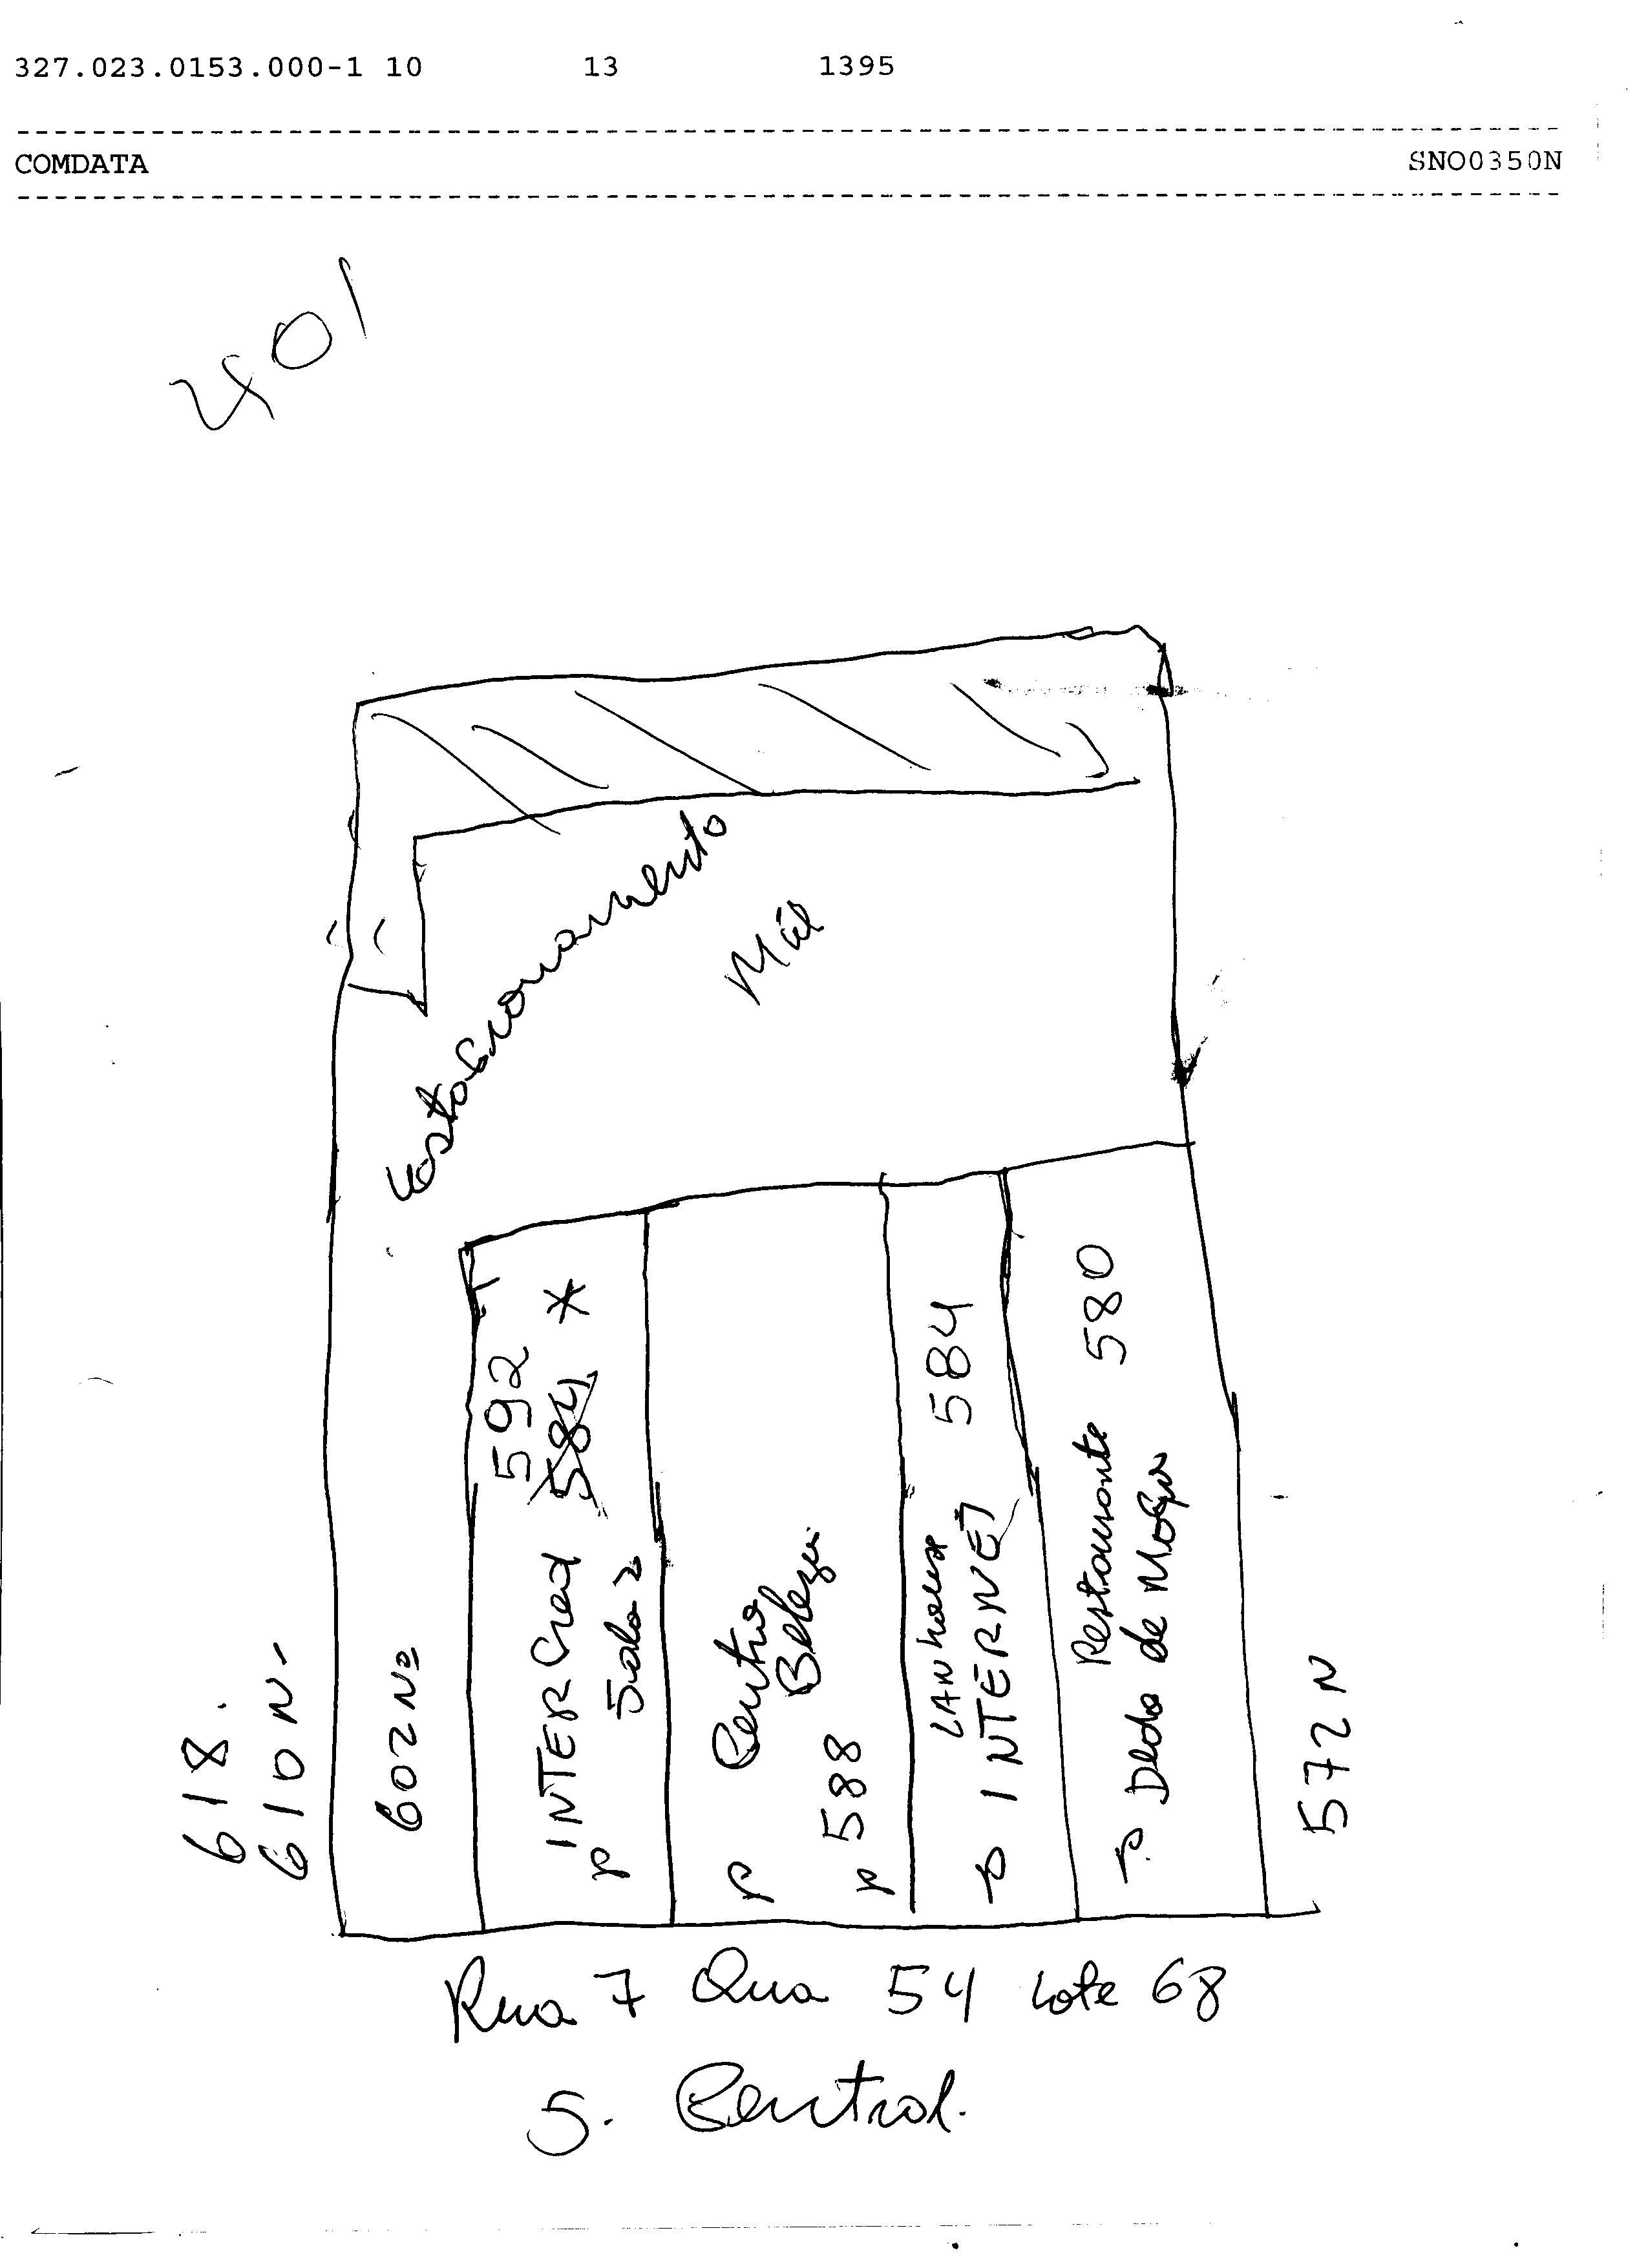 327.023.0153.000-1 10 13 1395
COMDATA SNO0350N
401
Estacionamento
618.
610 N-
602 Nº
592
INTER Cred 584 *
Sala 2
Centro
Beleza
588
LAN house
INTERNET 584
Restaurante 580
Dedo de Moça
572 N
Rua 7 Qua 54 Lote 68
S. Central.